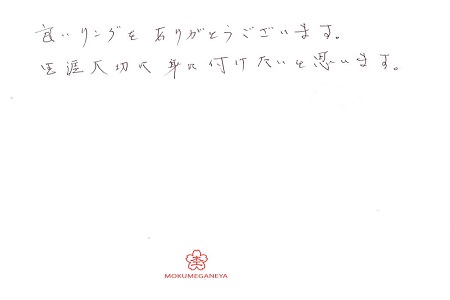 良いリングを有りがとうございます。
生涯大切に身に付けたいと思います。
MOKUMEGANEYA